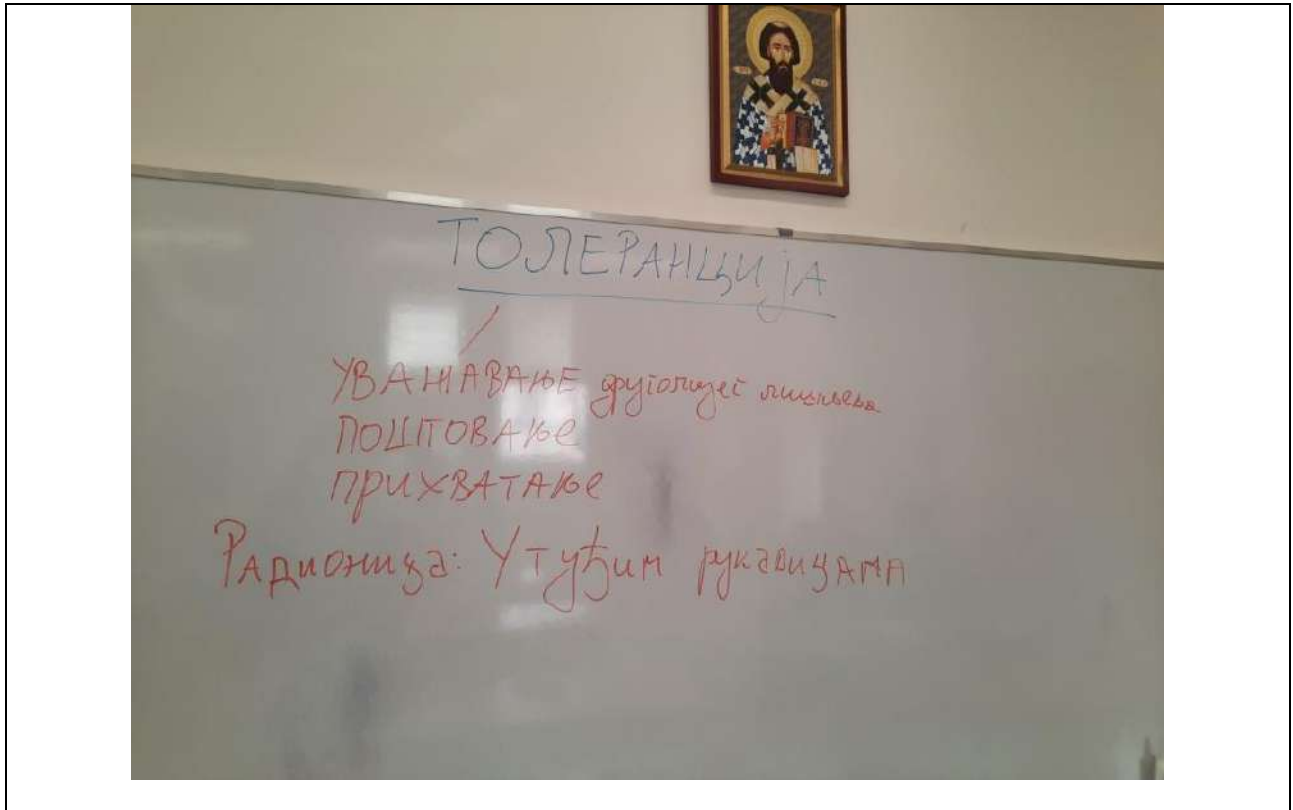 ТОЛЕРАНЦИЈА
УВАЖАВАЊЕ другачијег мишљења
ПОШТОВАЊЕ
ПРИХВАТАЊЕ
Радионица: У туђим рукавицама